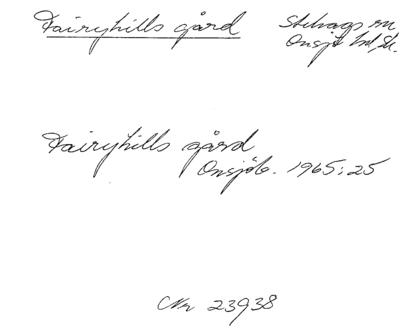 Fairyhills gård
Stehags sn
Onsjö hd, Sk.
Fairyhills gård
Onsjöb. 1965:25
Nr 23938